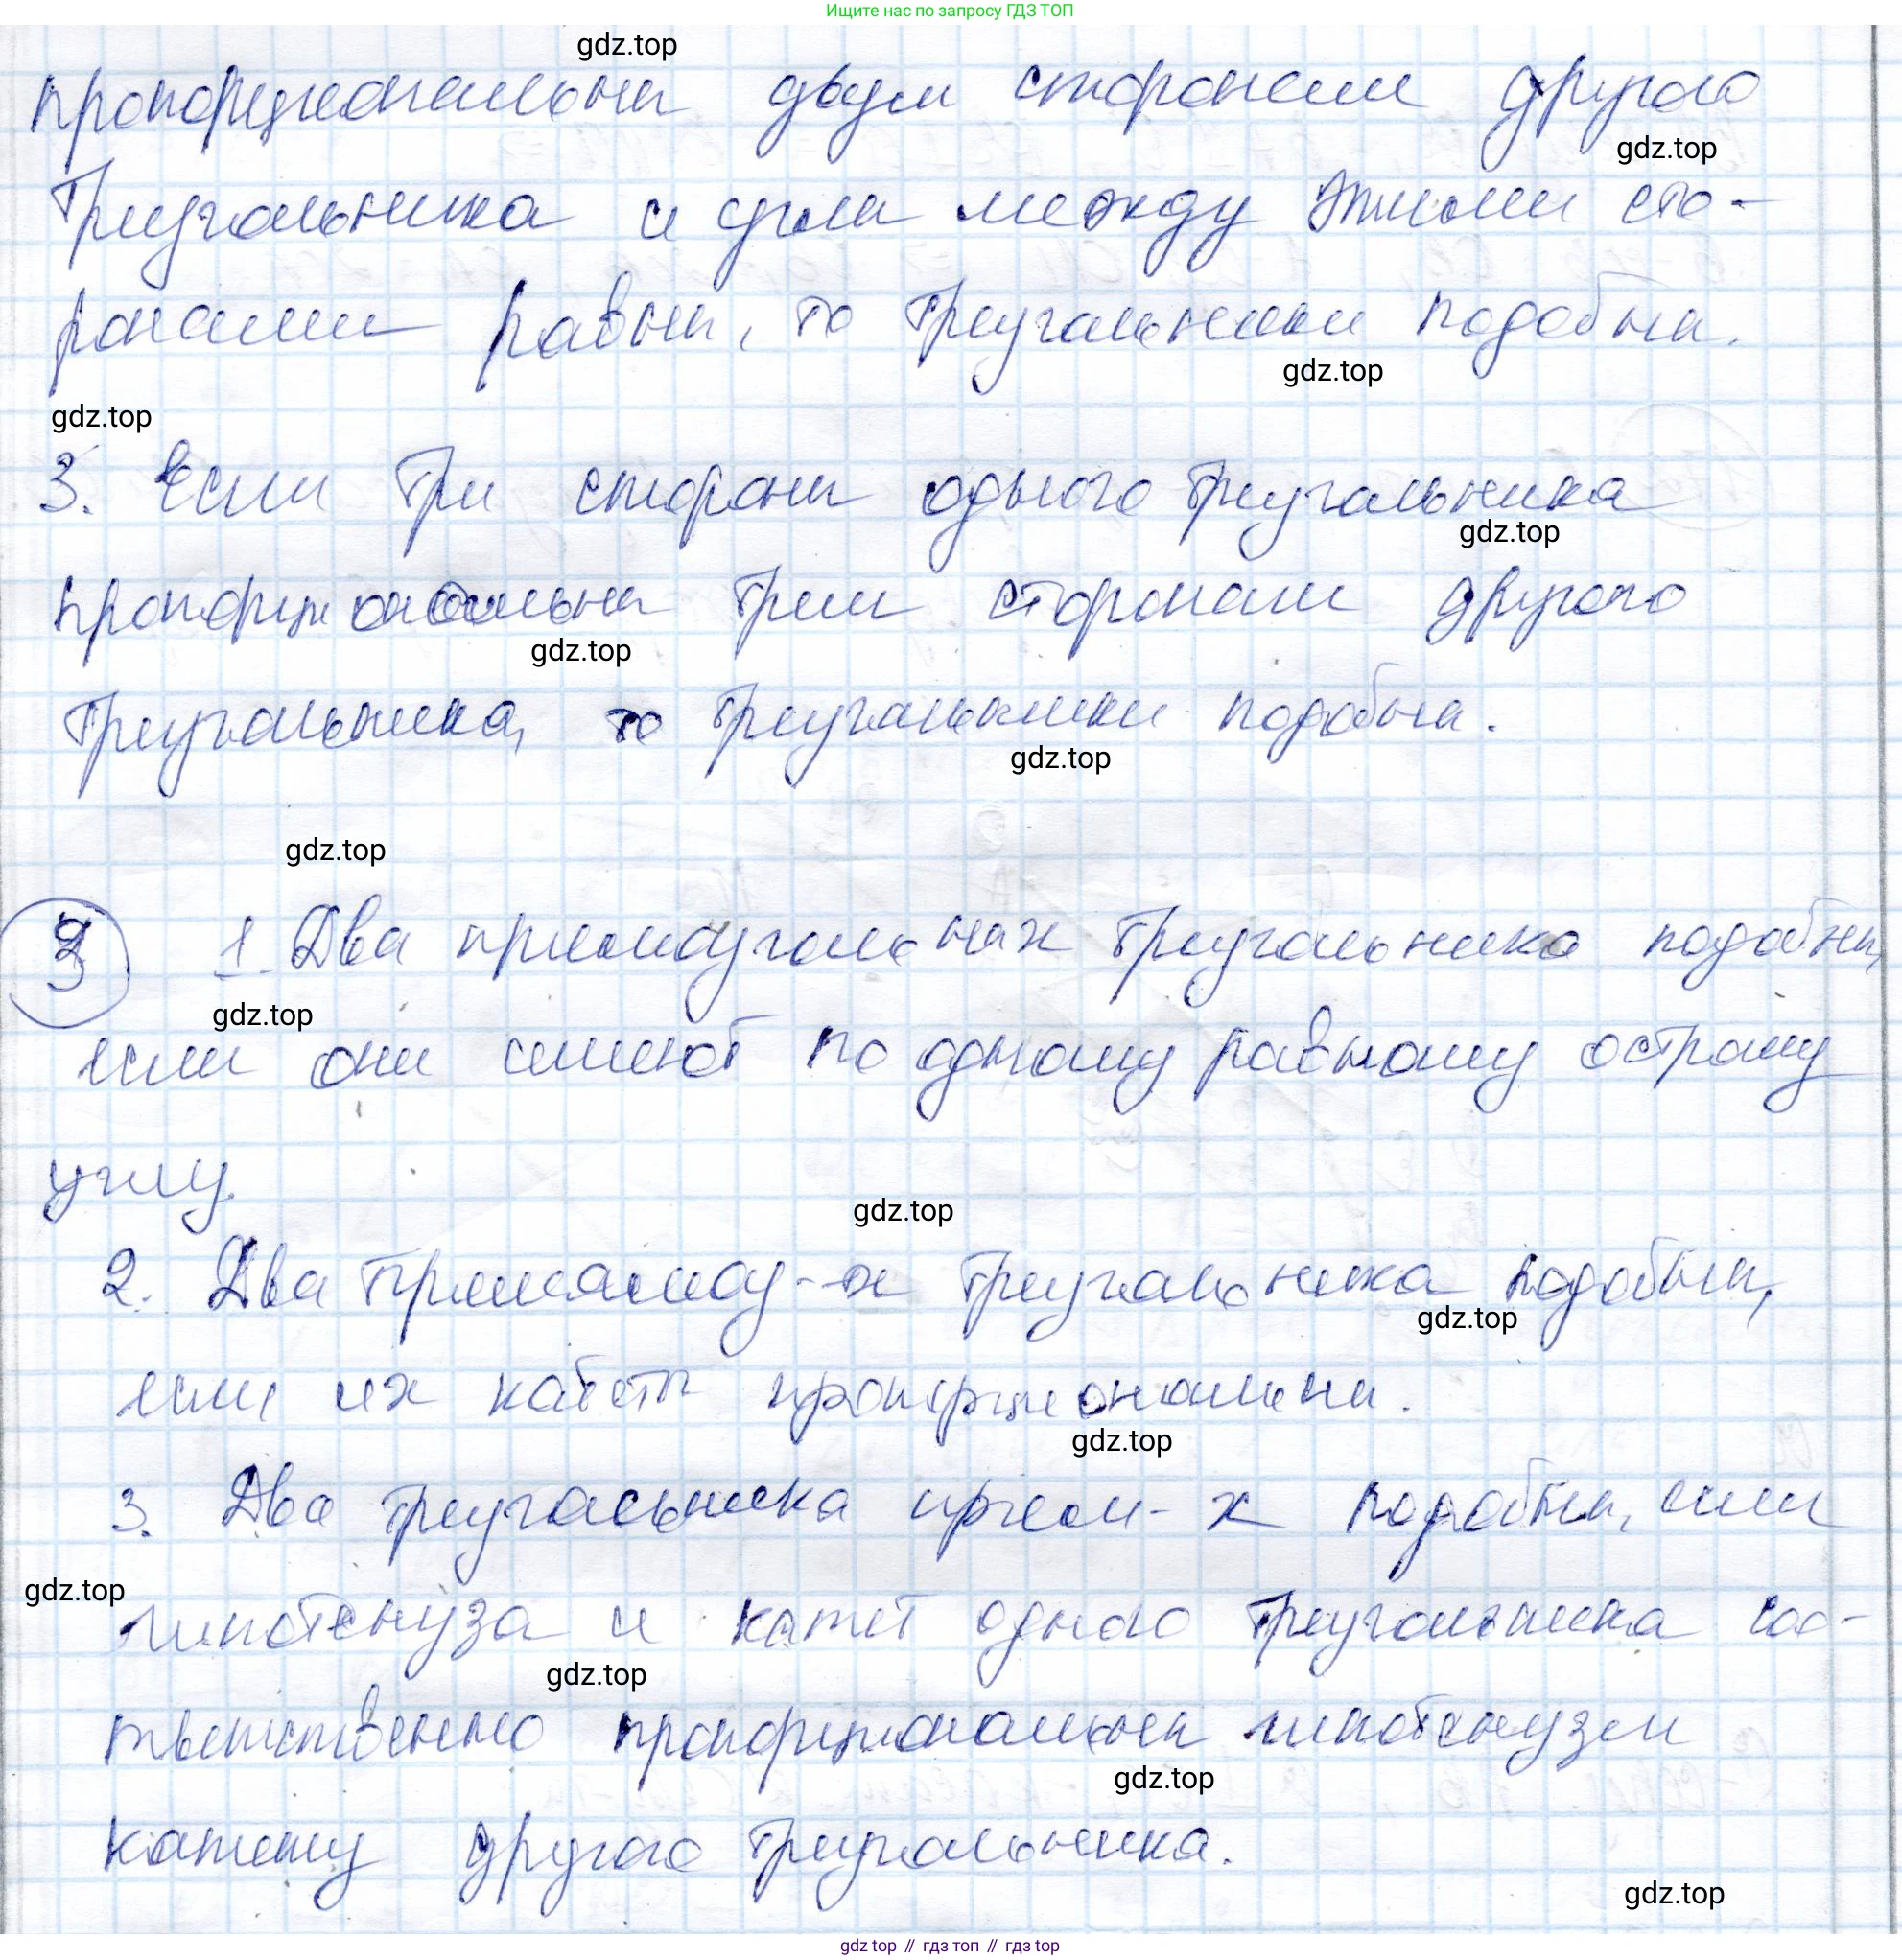 Ищите нас по запросу ГДЗ ТОП
gdz.top
пропорциональны двум сторонам другого
gdz.top
треугольника и углы между этими сто-
ронами равны, то треугольники подобны.
gdz.top
gdz.top
3. Если три стороны одного треугольника
gdz.top
пропорциональны трем сторонам другого
gdz.top
треугольника, то треугольники подобны.
gdz.top
gdz.top
1. Два прямоугольных треугольника подобны,
gdz.top
если они имеют по одному равному острому
углу.
gdz.top
2. Два треугольника подобны,
gdz.top
если их катеты пропорциональны.
gdz.top
3. Два треугольника прям-х подобны, если
gdz.top
гипотенуза и катет одного треугольника соо-
gdz.top
тветственно пропорциональны гипотенузе и
gdz.top
катету другого треугольника.
gdz.top
gdz top // гдз топ // гдз top